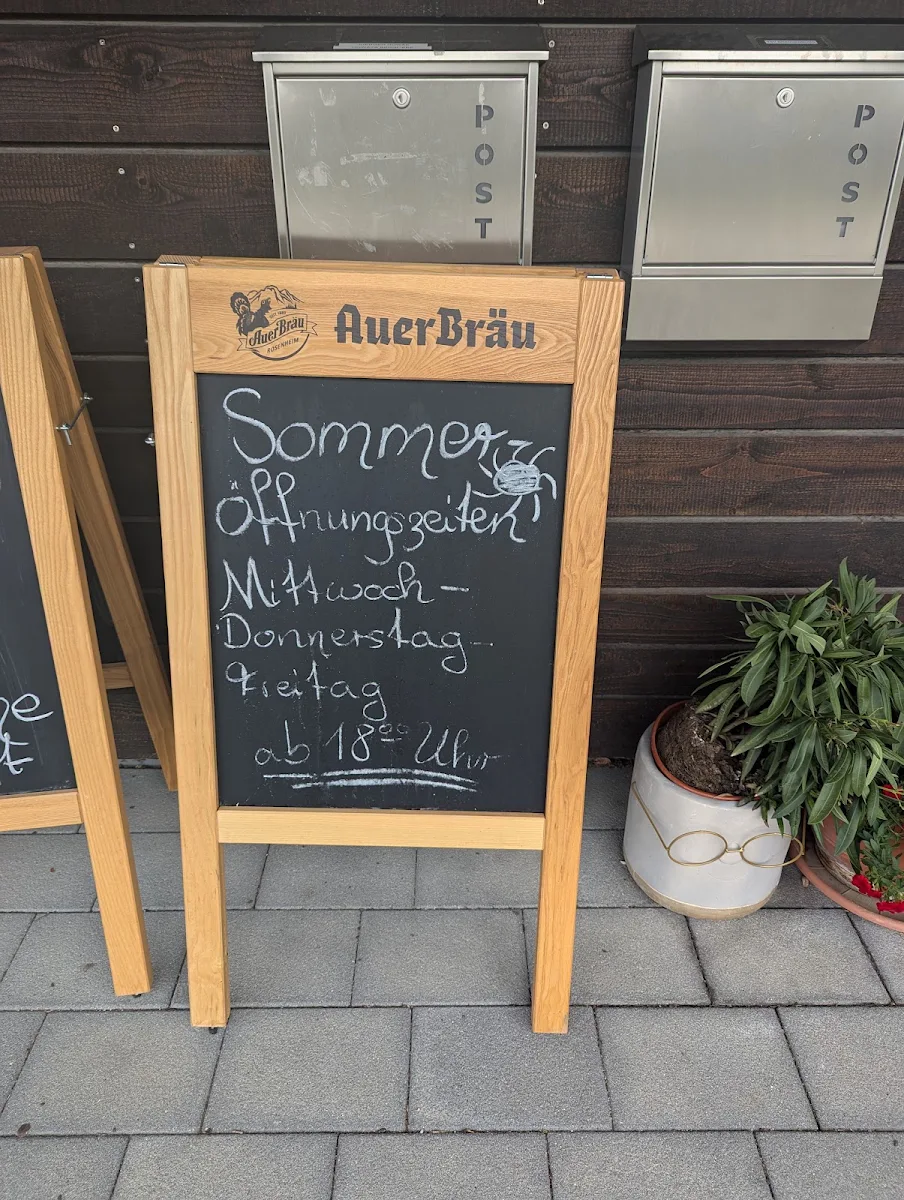 POST
POST
SEIT 1889
AuerBräu
ROSENHEIM
AuerBräu
Sommer
Öffnungszeiten
Mittwoch -
Donnerstag -
Freitag
ab 18⁰⁰ Uhr